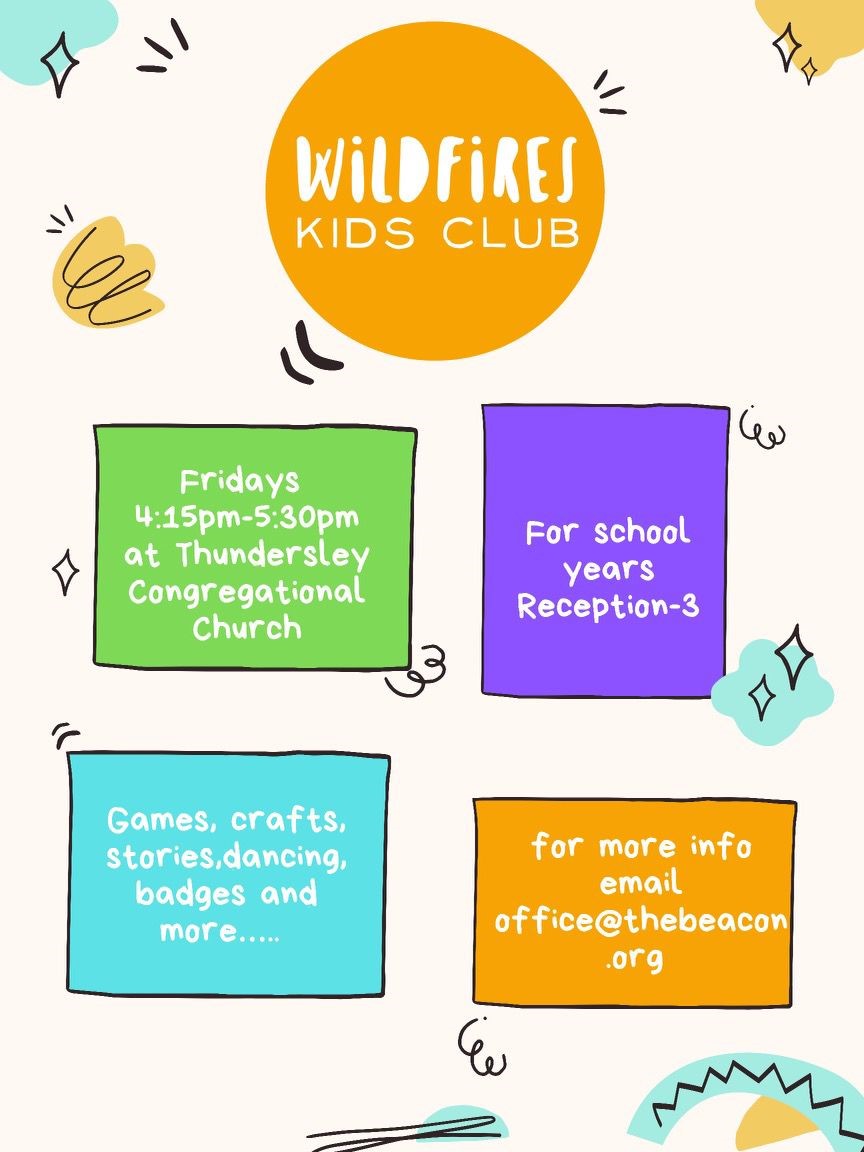 WiLDFiRES
KIDS CLUB
Fridays
4:15pm-5:30pm
at Thundersley
Congregational
Church
For school
years
Reception-3
Games, crafts,
stories,dancing,
badges and
more.....
for more info
email
office@thebeacon
.org